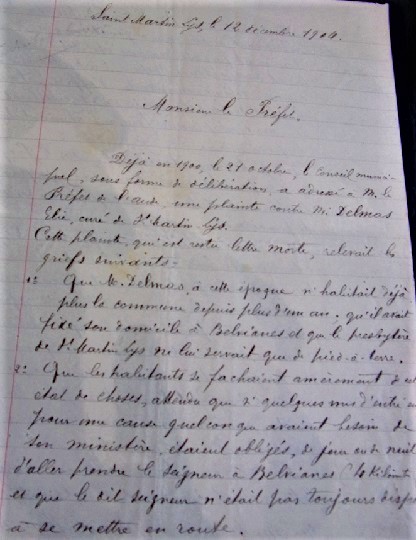 Saint Martin Lys, le 12 décembre 1904.
Monsieur le Préfet.
Déjà en 1900, le 21 octobre, le Conseil munici-
pal, sous forme de délibération, a adressé à M. le
Préfet de l'aude, une plainte contre Mr Delmas
Elie, curé de St Martin Lys.
Cette plainte, qui est restée lettre morte, relevait les
griefs suivants =
1: Que M. Delmas, à cette époque n'habitait déjà
plus la commune depuis plus d'un an. qu'il avait
fixé son domicile à Belvianes et que le presbytère
de St Martin Lys ne lui servait que de pied-à-terre.
2: Que les habitants se fachaient amèrement d'
état de choses, attendu que si quelques uns d'entre
pour une cause quelconque avaient besoin de
son ministère, étaient obligés, de jour ou de nuit
d'aller prendre le seigneur à Belvianes
et que le dit seigneur n'était pas toujours
à se mettre en route.